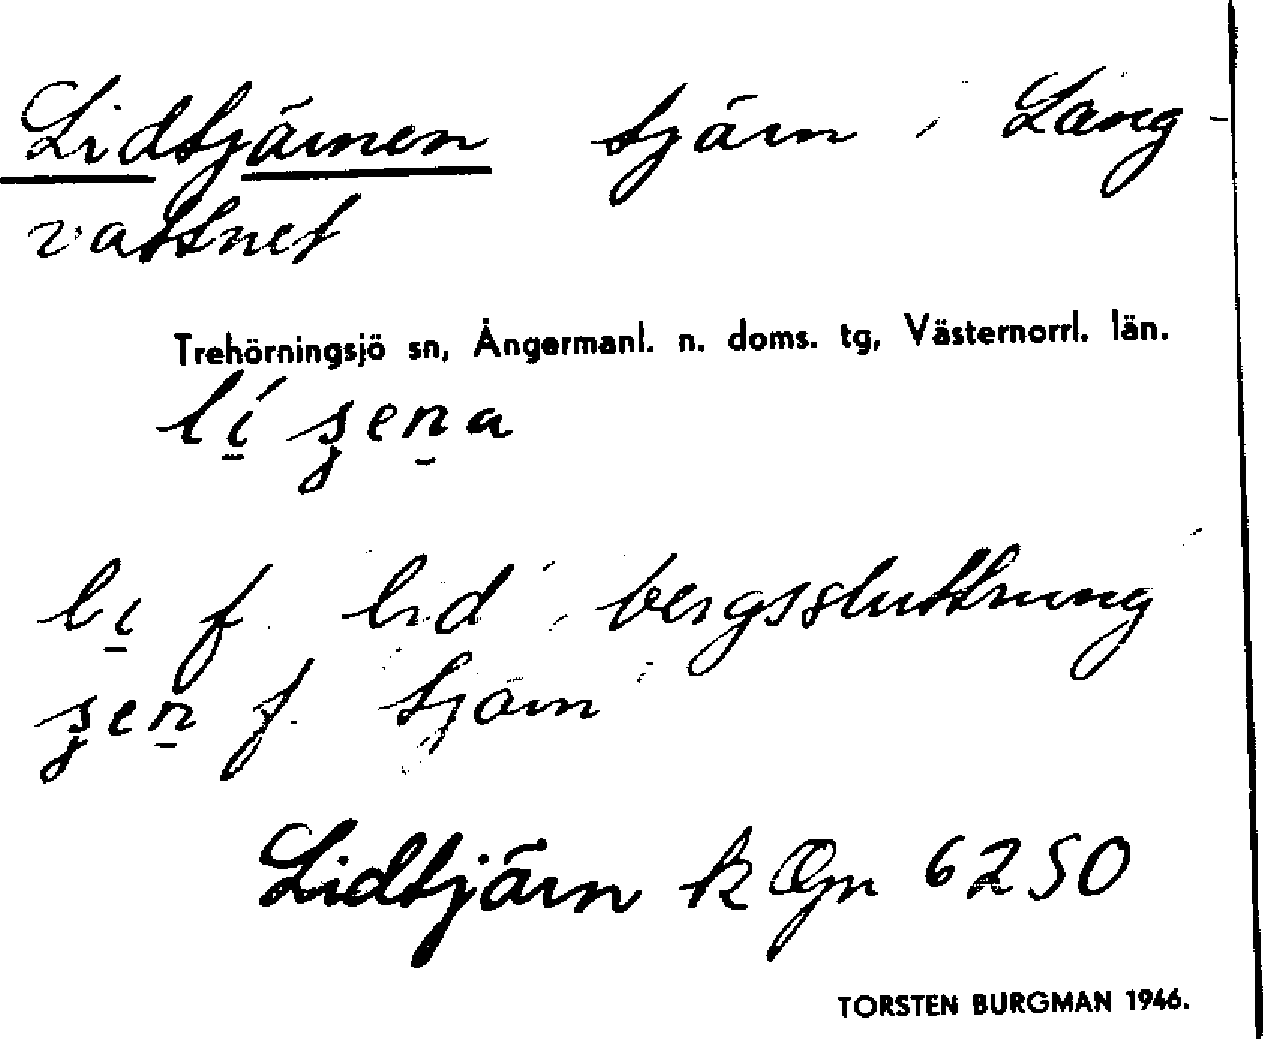 Lidtjärnen tjärn i Lång-
vattnet
Trehörningsjö sn, Ångermanl. n. doms. tg, Västernorrl. län.
lí ʒena
li f. lid, bergssluttning
ʒen f. tjärn
Lidtjärn k Ögn 6250
TORSTEN BURGMAN 1946.